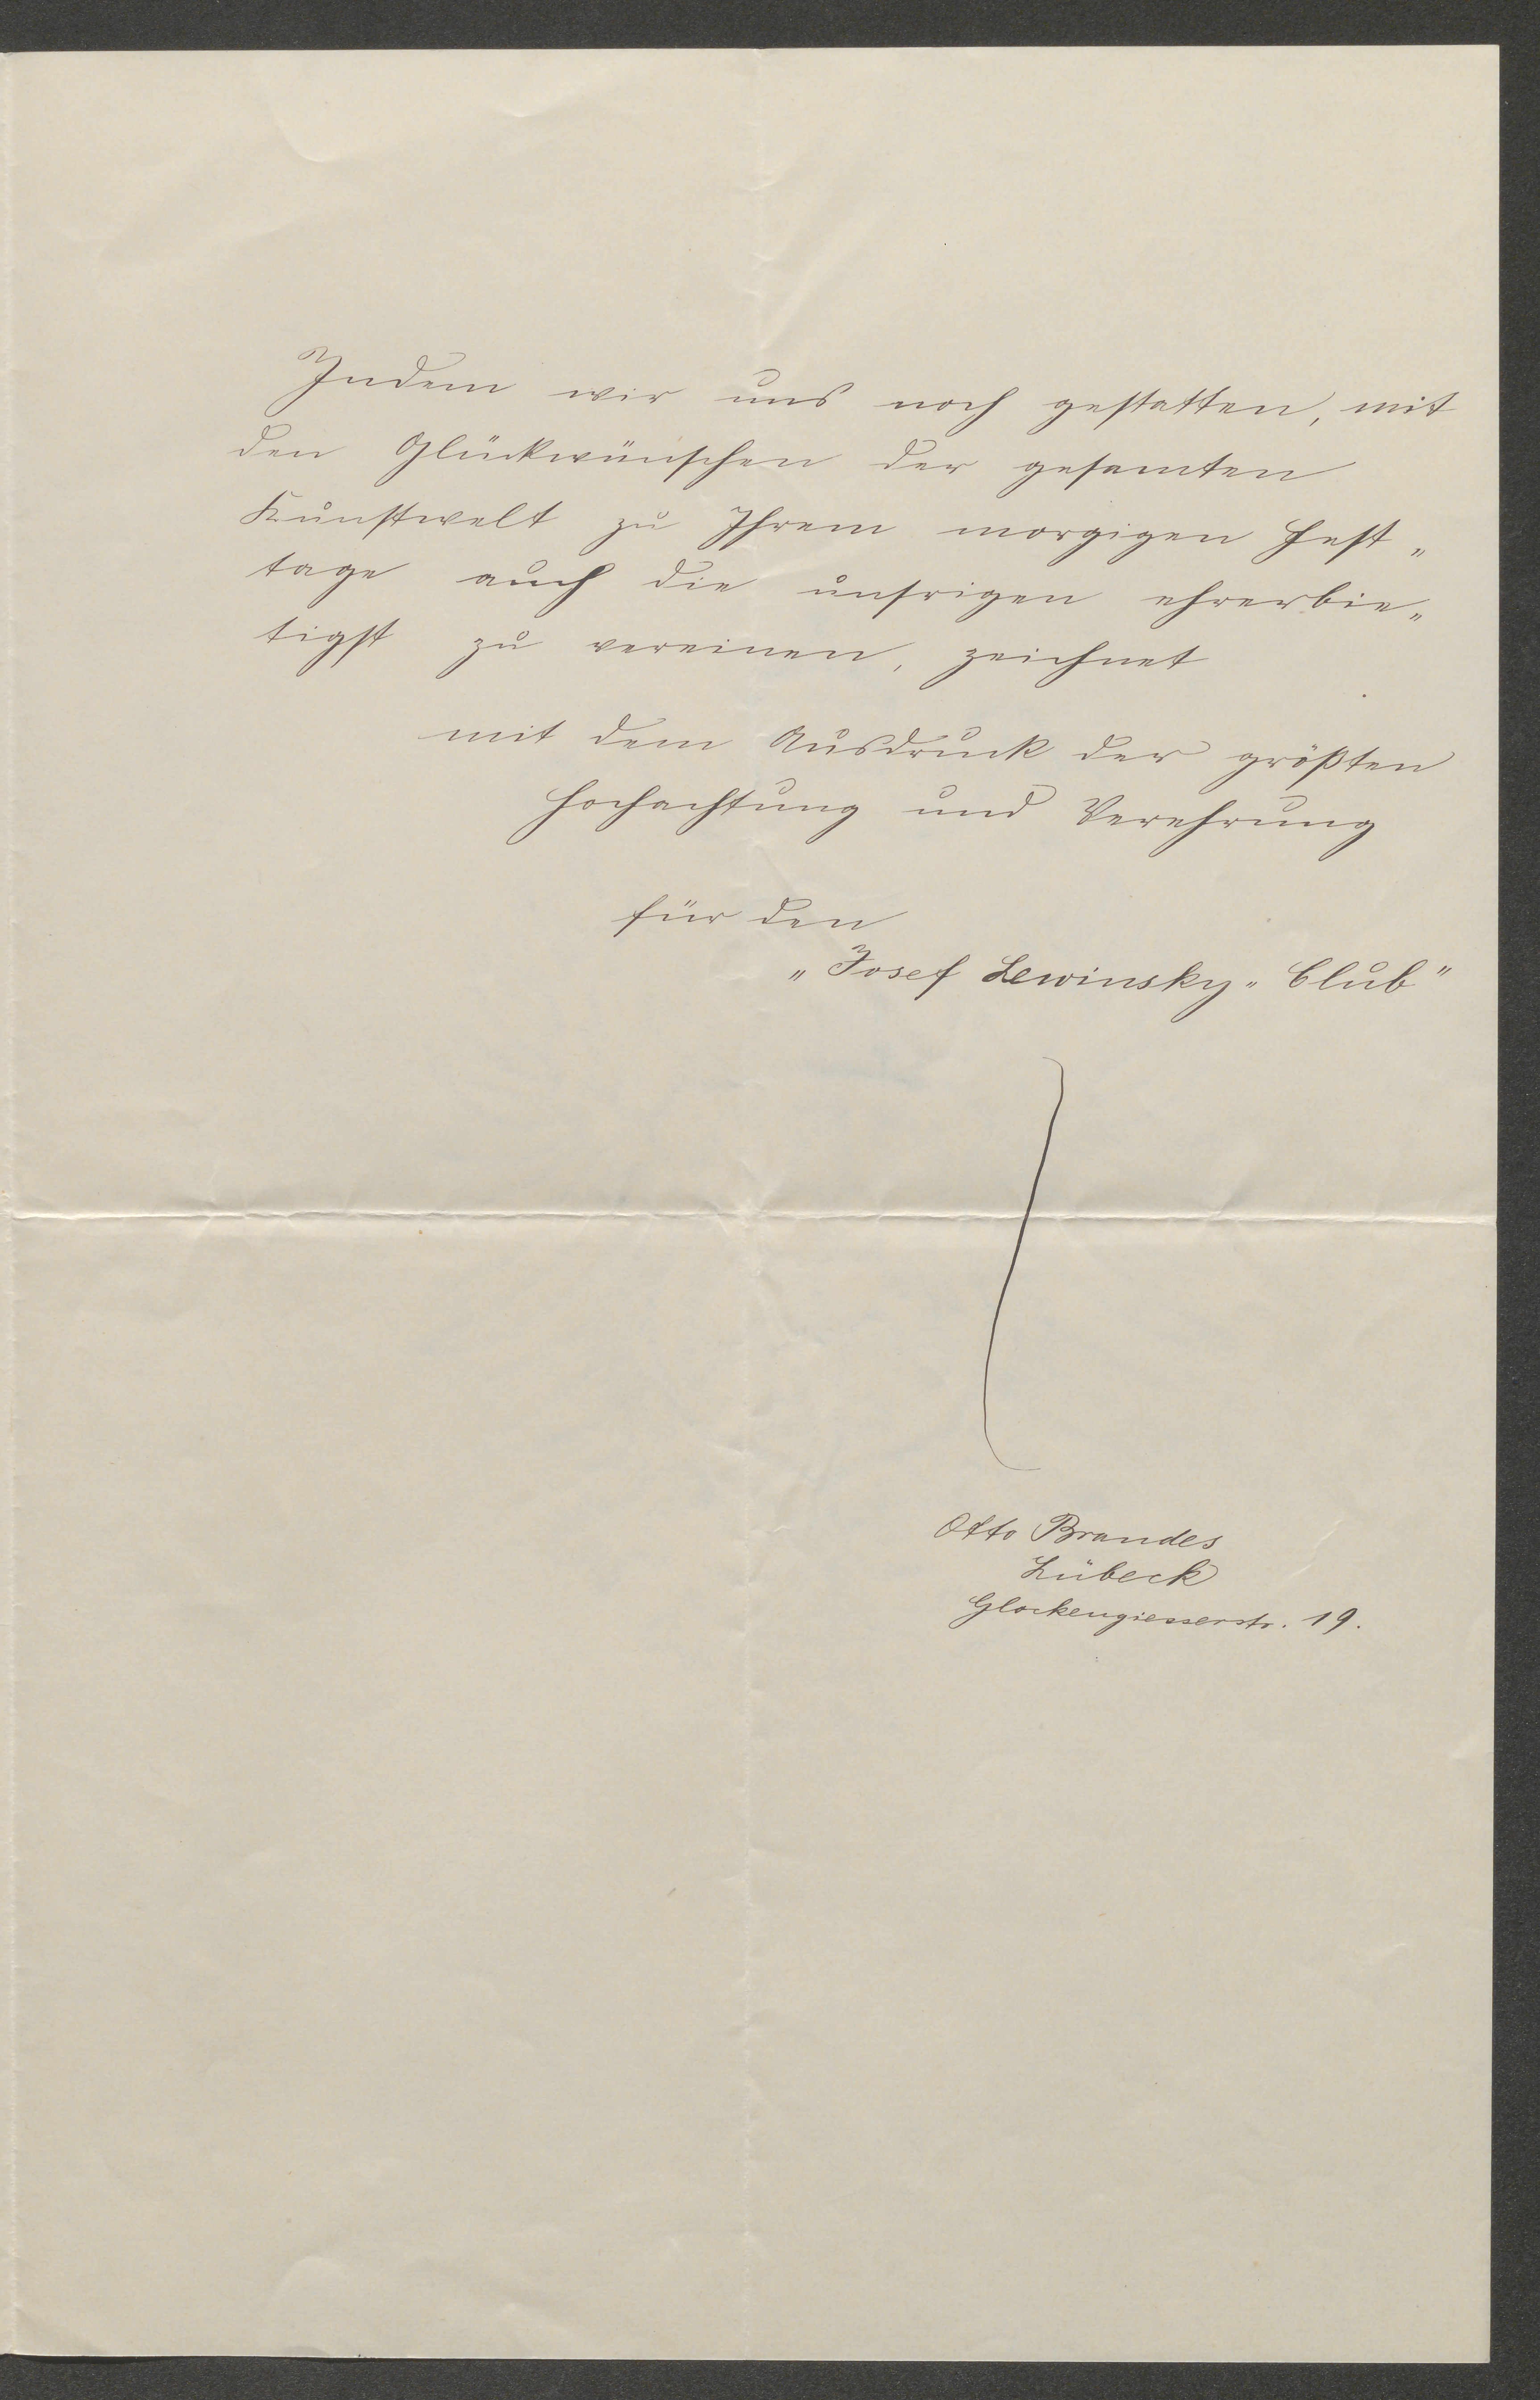 Indem wir uns noch gestatten, mit
den Glückwünschen der gesamten
Kunstwelt zu Ihrem morgigen Fest„
tage auch die unsrigen ehrerbie„
tigst zu vereinen, zeichnet
mit dem Ausdruck der größten
Hochachtung und Verehrung
für den
„Josef Lewinsky„Club"
Otto Brandes
Lübeck
Glockengiesserstr. 19.